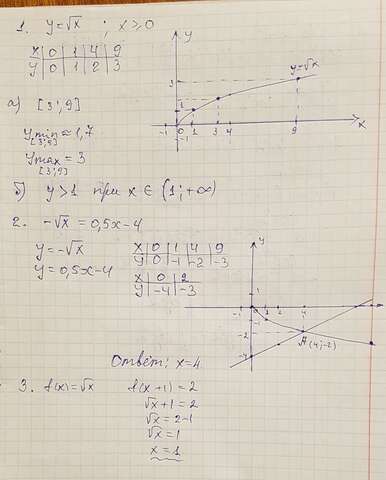 1. y=√x ; x≥0
x | 0 | 1 | 4 | 9
y | 0 | 1 | 2 | 3
y
3
1
y=√x
-1 0 1 3 4 9 x
-1
а) [3; 9]
y min ≈ 1,7
[3; 9]
y max = 3
[3; 9]
б) y>1 при x ∈ (1; +∞)
2. -√x = 0,5x-4
y = -√x
x | 0 | 1 | 4 | 9
y | 0 | -1 | -2 | -3
y = 0,5x-4
x | 0 | 2
y | -4 | -3
y
1
-1 0 1 4 x
-1
-2
A (4; -2)
-4
Ответ: x=4
3. f(x)=√x f(x+1) = 2
√x+1 = 2
√x = 2-1
√x = 1
x = 1